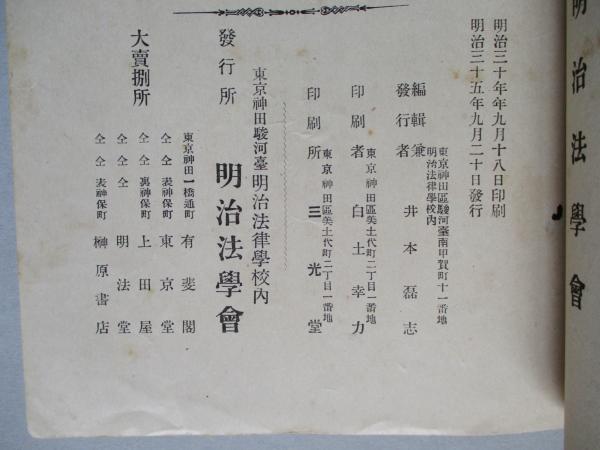 明治法學會
明治三十年年九月十八日印刷
明治三十五年九月二十日發行
東京神田區駿河臺南甲賀町十一番地
明治法律學校內
編輯兼
發行者
井本磊志
東京神田區美土代町二丁目一番地
印刷者
白土幸力
東京神田區美土代町二丁目一番地
印刷所
三光堂
東京神田駿河臺明治法律學校內
發行所
明治法學會
大賣捌所
東京神田一橋通町
有斐閣
仝仝表神保町
東京堂
仝仝裏神保町
上田屋
仝仝仝
明法堂
仝仝表神保町
榊原書店